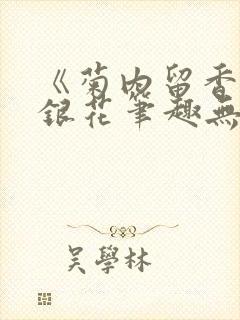 《菊内留香
銀花筆趣無
吳學林